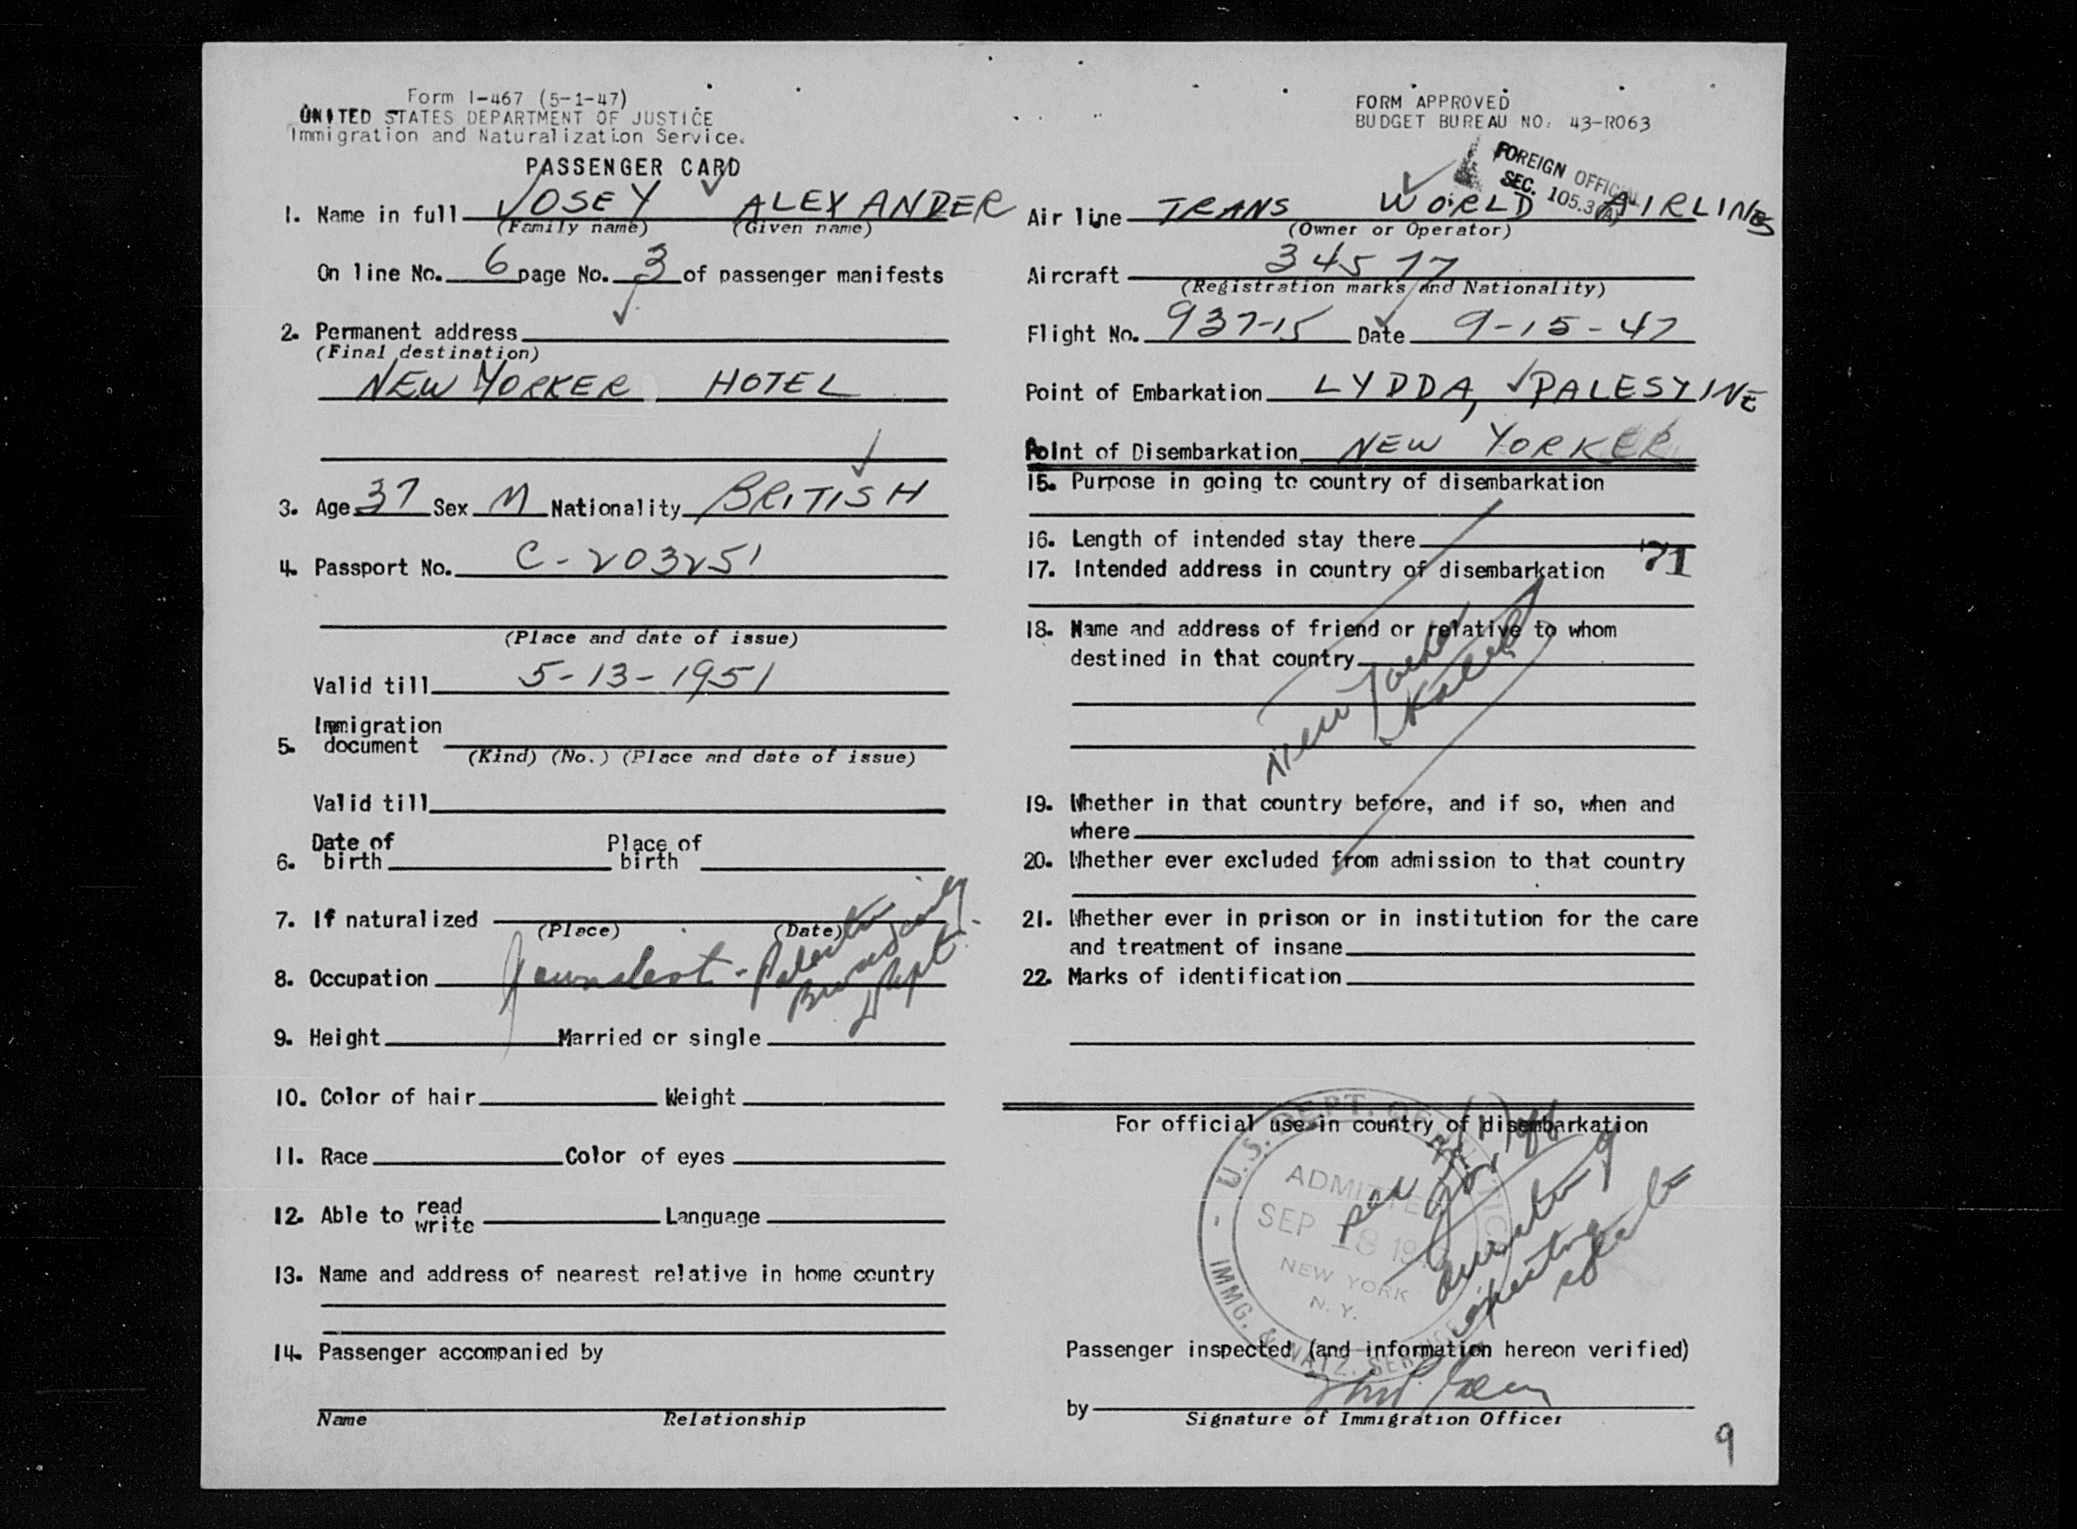 Form I-467 (5-1-47)
UNITED STATES DEPARTMENT OF JUSTICE
Immigration and Naturalization Service.
PASSENGER CARD
1. Name in full JOSEY ALEXANDER
(Family name) (Given name)
On line No. 6 page No. 3 of passenger manifests
2. Permanent address
(Final destination)
NEW YORKER HOTEL
3. Age 37 Sex M Nationality BRITISH
4. Passport No. C-203251
(Place and date of issue)
Valid till 5-13-1951
Immigration
5. document
(Kind) (No.) (Place and date of issue)
Valid till
Date of Place of
6. birth birth
7. If naturalized
(Place) (Date)
8. Occupation Journalist - Palestine
Broadcasting
Dept.
9. Height Married or single
10. Color of hair Weight
11. Race Color of eyes
12. Able to read write Language
13. Name and address of nearest relative in home country
14. Passenger accompanied by
Name Relationship
FORM APPROVED
BUDGET BUREAU NO. 43-R063
FOREIGN OFFICIAL
SEC. 105.3(A)
Air line TRANS WORLD AIRLINES
(Owner or Operator)
Aircraft 34577
(Registration marks and Nationality)
Flight No. 937-15 Date 9-15-47
Point of Embarkation LYDDA, PALESTINE
Point of Disembarkation NEW YORKER
15. Purpose in going to country of disembarkation
16. Length of intended stay there
71
17. Intended address in country of disembarkation
18. Name and address of friend or relative to whom
destined in that country
New Yorker
Hotel
19. Whether in that country before, and if so, when and
where
20. Whether ever excluded from admission to that country
21. Whether ever in prison or in institution for the care
and treatment of insane
22. Marks of identification
For official use in country of disembarkation
U.S. DEPT. OF JUSTICE
ADMITTED
SEP 18 194
NEW YORK
N.Y.
IMMG. & NATZ. SERVICE
Passenger inspected (and information hereon verified)
by
Signature of Immigration Officer
9